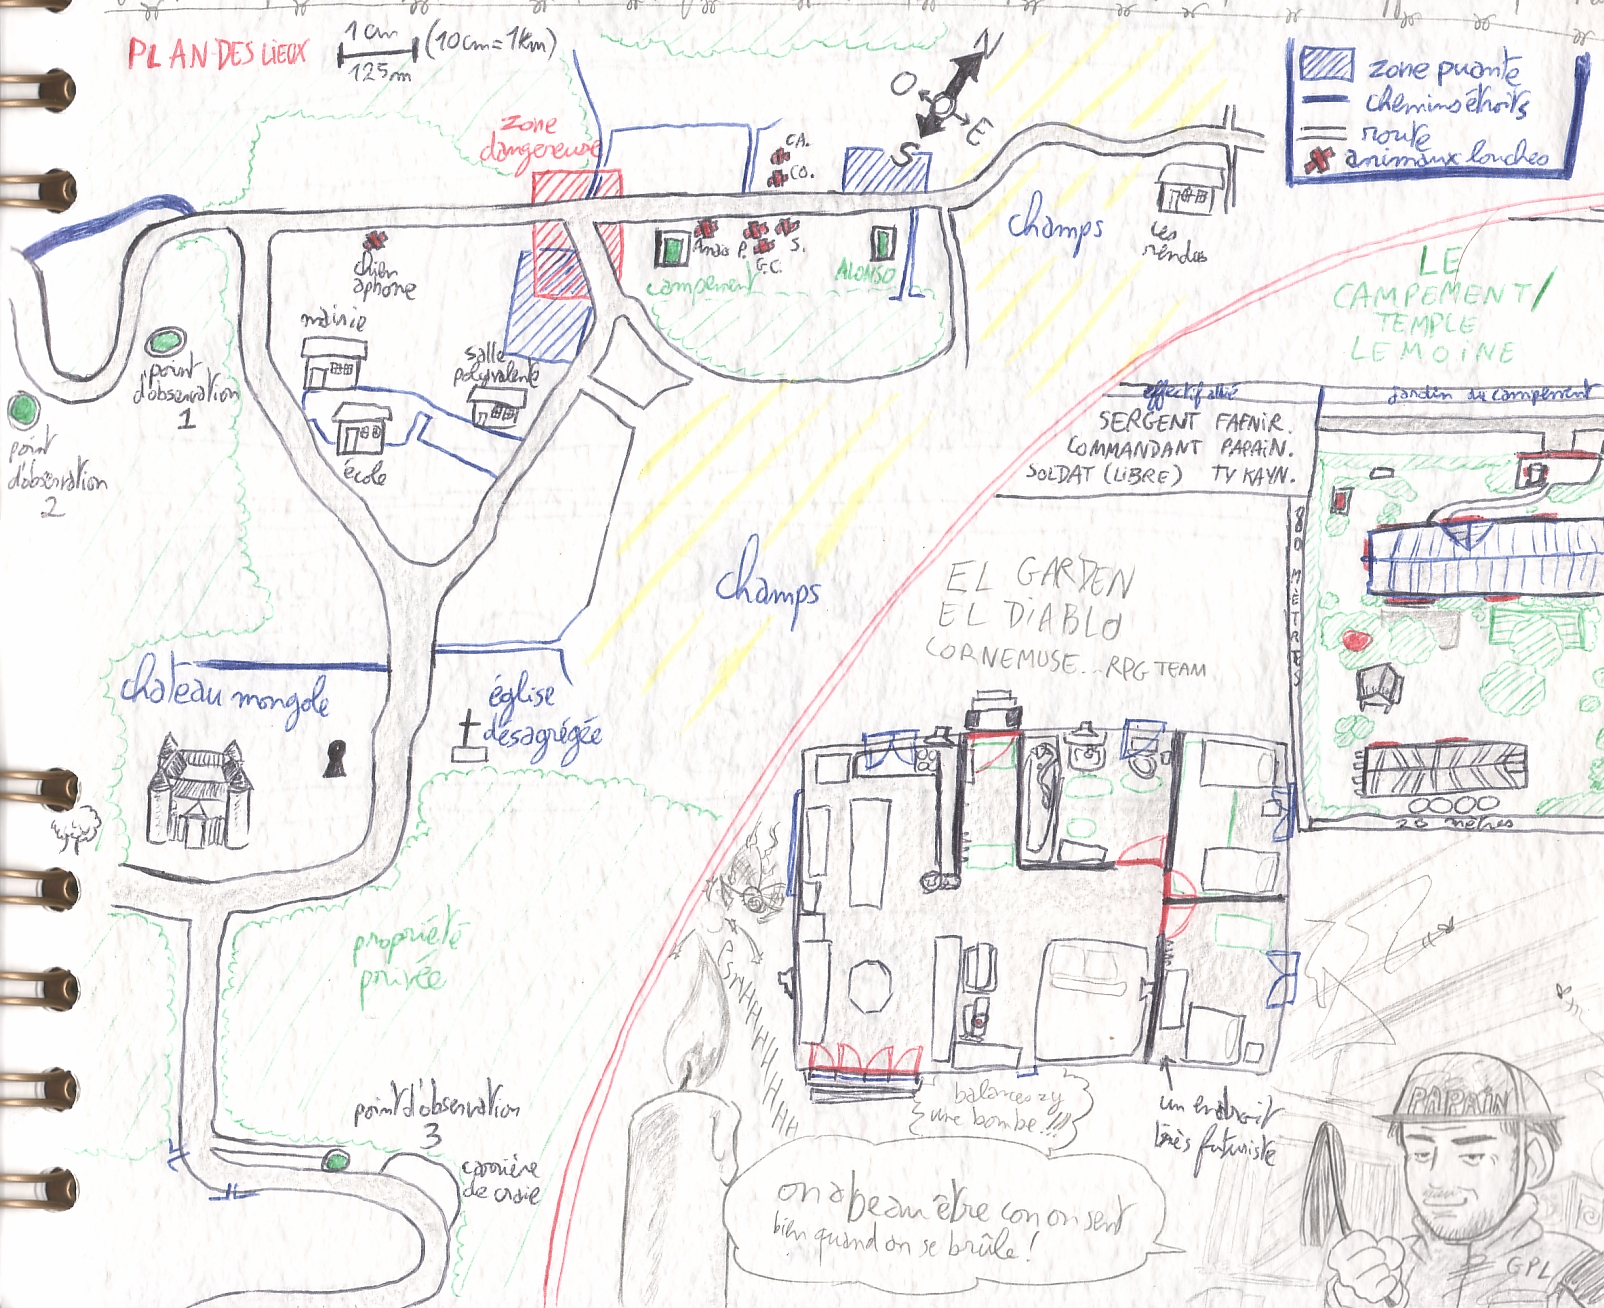 PLAN DES LIEUX
1 cm
(10cm=1km)
125m
N
O
E
S
zone puante
chemins étroits
route
animaux louches
zone
dangereuse
CA.
CO.
champs
Les
rendus
chien
aphone
Anaïs
P.
S.
G.C.
campement
ALONSO
mairie
salle
polyvalente
école
point
d'observation
1
point
d'observation
2
champs
chateau mongole
église
désagrégée
propriété
privée
point d'observation
3
carrière
de craie
LE
CAMPEMENT/
TEMPLE
LEMOINE
effectif allié
SERGENT FAFNIR.
COMMANDANT PAPAIN.
SOLDAT (LIBRE) TY KAYN.
jardin du campement
MÈTRES
20 mètres
EL GARDEN
EL DIABLO
CORNEMUSE... RPG TEAM
PSHHHHHHHHH
balances-zy
une bombe!!!
un endroit
très futuriste
on a beau être con on sent
bien quand on se brûle!
PAPAIN
GPL